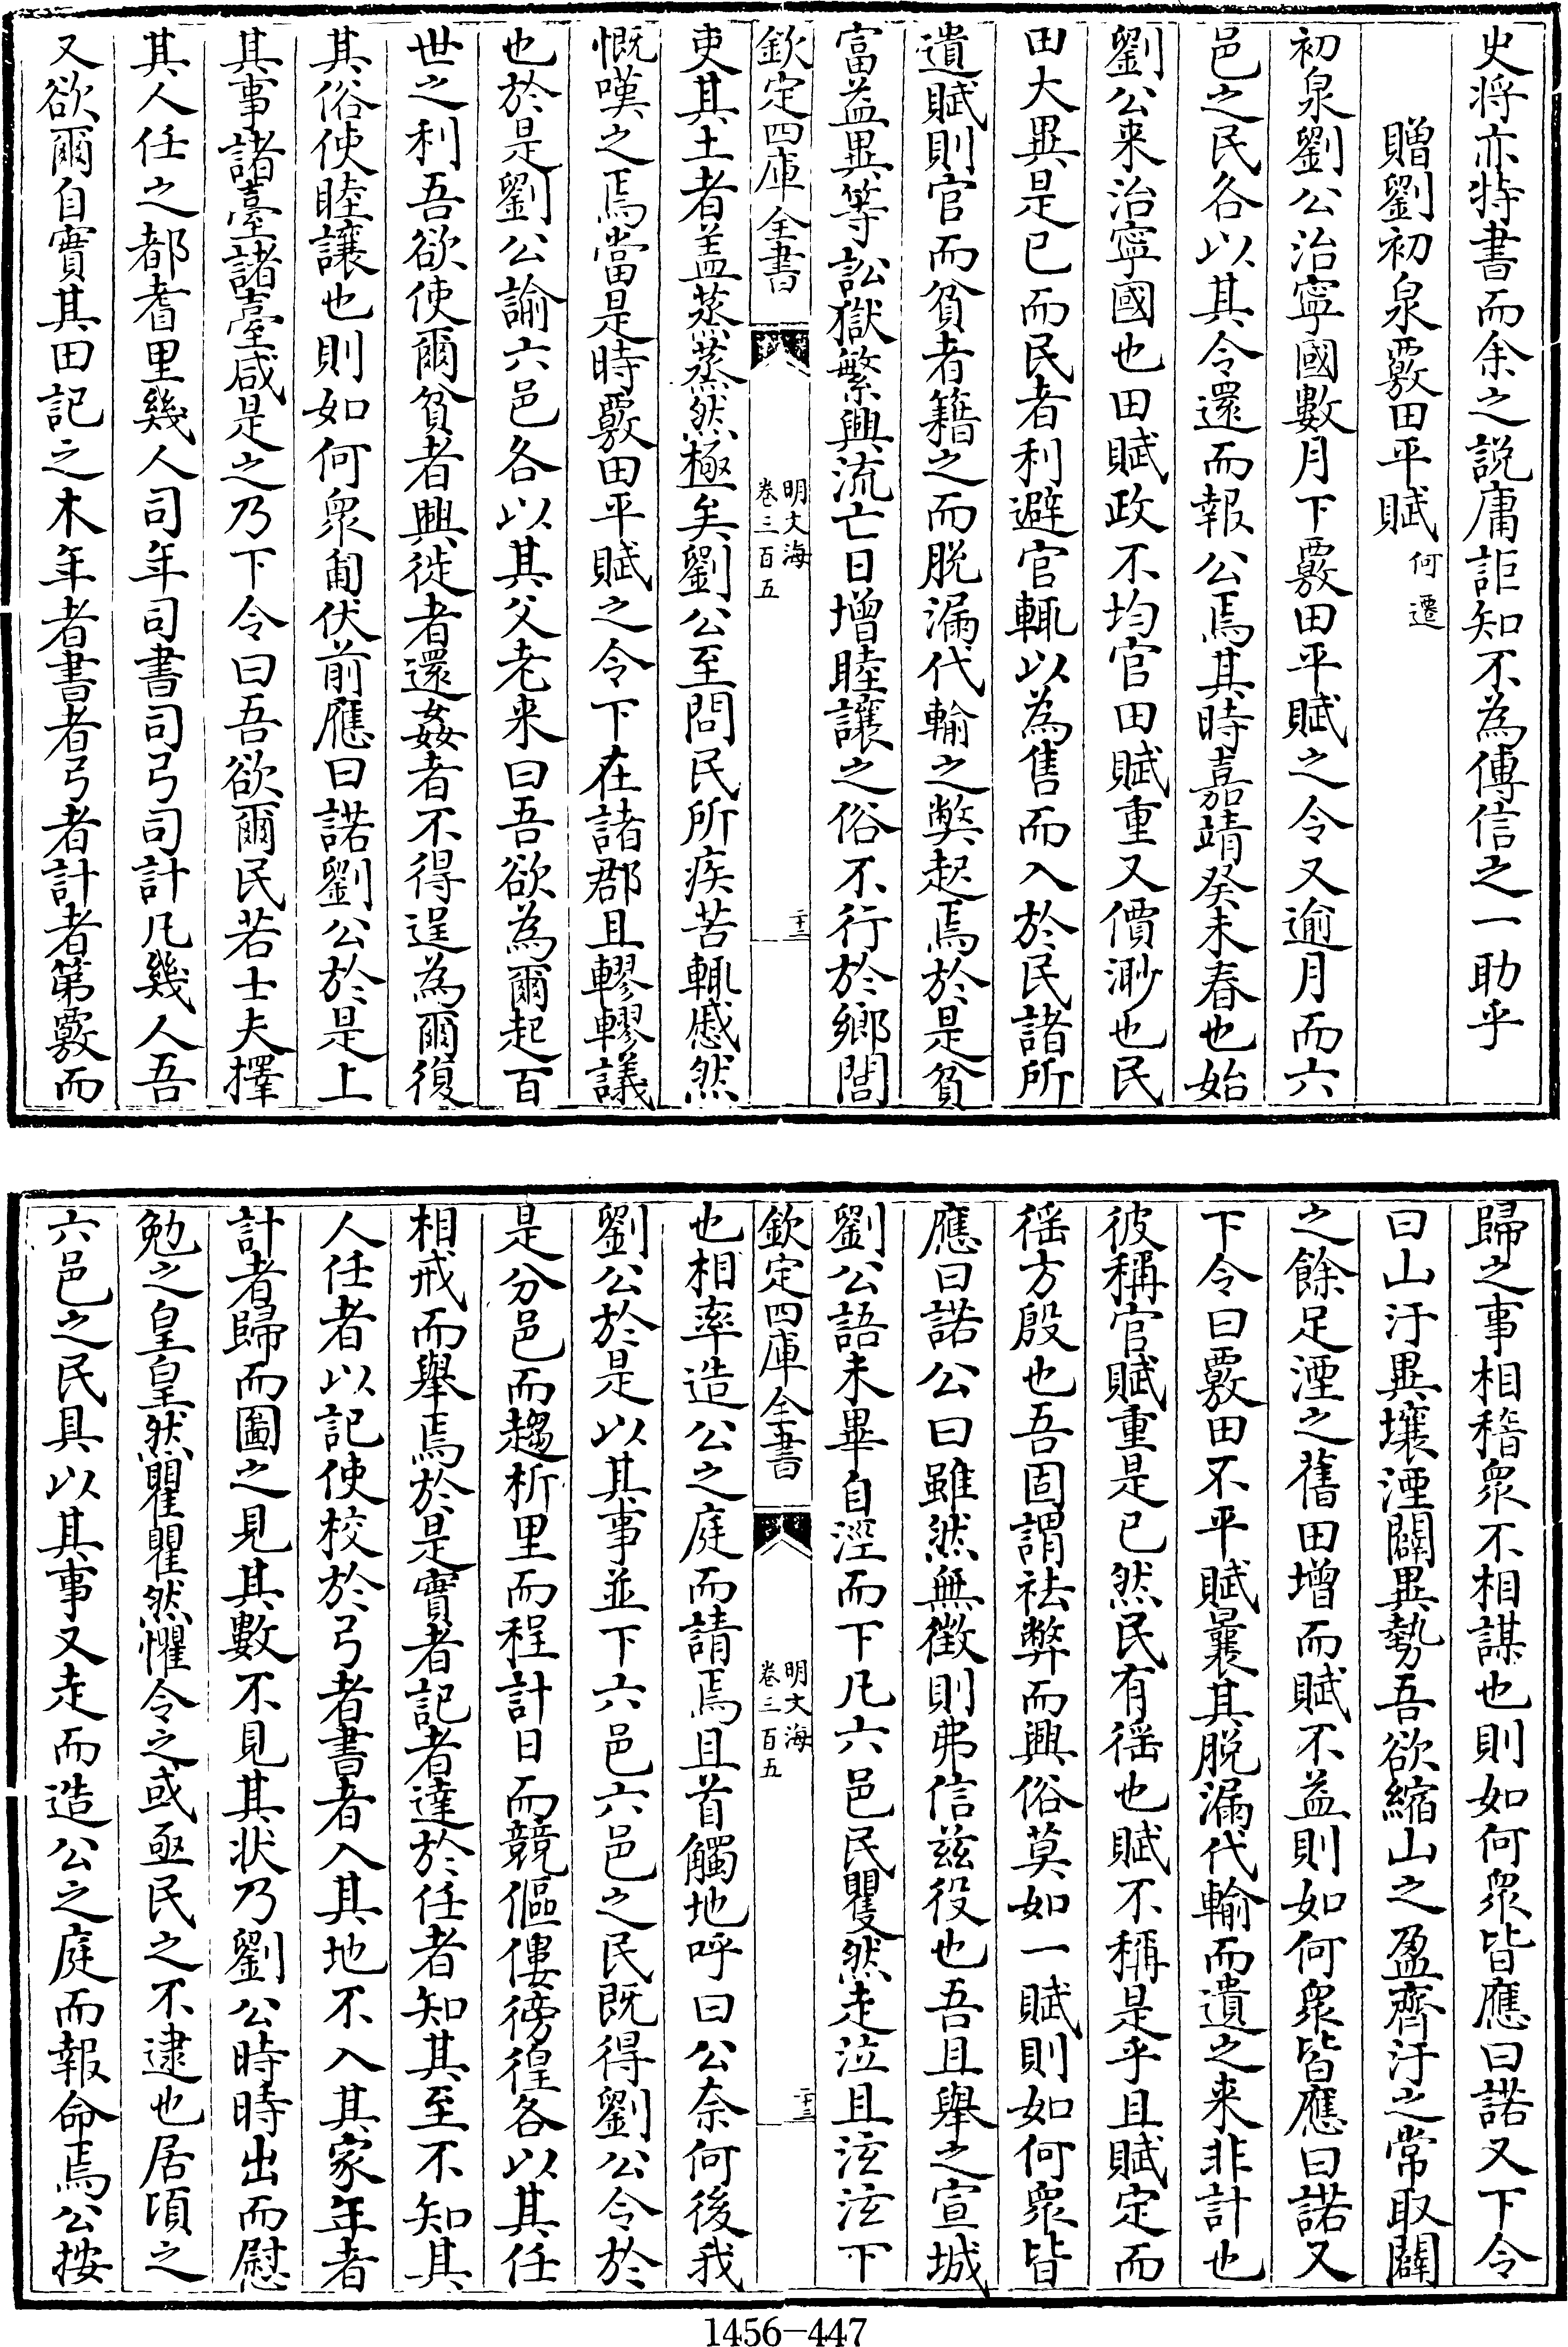 史将亦特書而余之説庸詎知不為傅信之一助乎
贈劉初泉覈田平賦 何遷
初泉劉公治寧國數月下覈田平賦之令又逾月而六
邑之民各以其令還而報公焉其時嘉靖癸未春也始
劉公来治寧國也田賦政不均官田賦重又價渺也民
田大異是已而民者利避官輒以為售而入於民諸所
遺賦則官而貧者籍之而脱漏代輸之弊起焉於是貧
富益異等訟獄繁興流亡日增睦讓之俗不行於鄉閭
欽定四庫全書
明文海
卷三百五
二十三
吏其土者盖蒸蒸然極矣劉公至問民所疾苦輒慼然
慨嘆之焉當是時覈田平賦之令下在諸郡且轇轇議
也於是劉公諭六邑各以其父老来曰吾欲為爾起百
世之利吾欲使爾貧者興徙者還姦者不得逞為爾復
其俗使睦讓也則如何衆匍伏前應曰諾劉公於是上
其事諸臺諸臺咸是之乃下令曰吾欲爾民若士夫擇
其人任之都耆里幾人司年司書司弓司計凡幾人吾
又欲爾自實其田記之木年者書者弓者計者第覈而
歸之事相稽衆不相謀也則如何衆皆應曰諾又下令
曰山汙異壤湮闢異勢吾欲縮山之盈齊汙之常取闢
之餘足湮之舊田增而賦不益則如何衆皆應曰諾又
下令曰覈田不平賦曩其脱漏代輸而遺之来非計也
彼稱官賦重是已然民有徭也賦不稱是乎且賦定而
徭方殷也吾固謂祛弊而興俗莫如一賦則如何衆皆
應曰諾公曰雖然無徴則弗信兹役也吾且舉之宣城
劉公語未畢自涇而下凡六邑民矍然走泣且泫泫下
欽定四庫全書
明文海
卷三百五
二十三
也相率造公之庭而請焉且首觸地呼曰公奈何後我
劉公於是以其事並下六邑六邑之民既得劉公令於
是分邑而趨析里而程計日而競傴僂徬徨各以其任
相戒而舉焉於是實者記者達於任者知其至不知其
人任者以記使校於弓者書者入其地不入其家年者
計者歸而圖之見其數不見其状乃劉公時時出而慰
勉之皇皇然瞿瞿然懼令之或亟民之不逮也居頃之
六邑之民具以其事又走而造公之庭而報命焉公按
1456-447